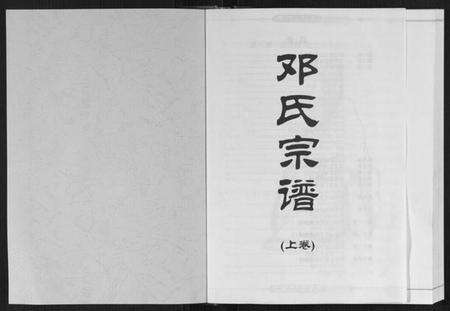 邓氏宗谱
(上卷)